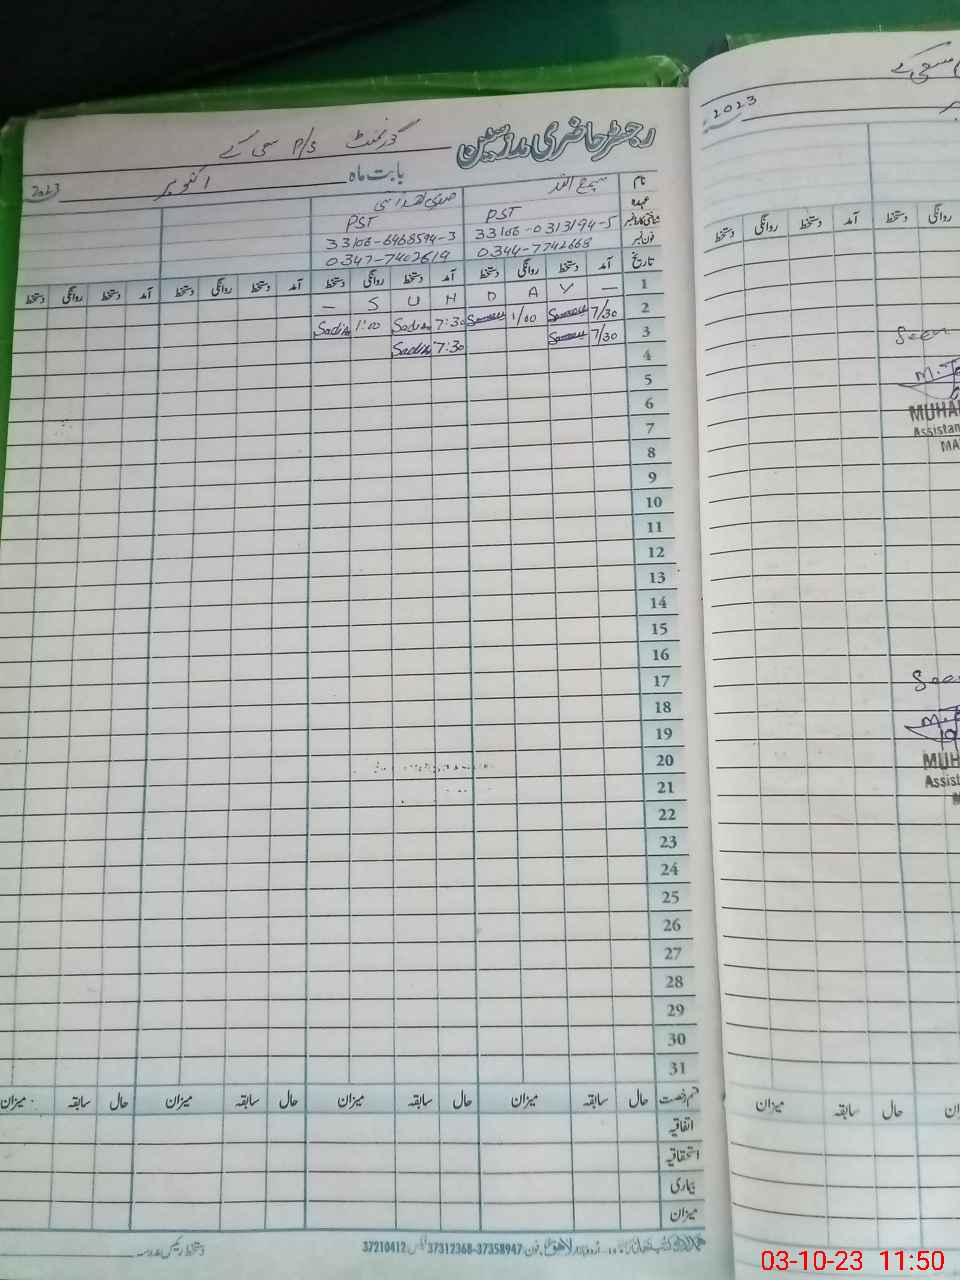 رجسٹر حاضری مدرسین
گورنمنٹ P/S سی کے
بابت ماہ اکتوبر 2023
نام سمیع اللہ
عہدہ PST PST
شناختی کارڈ نمبر 33106-0313194-5 33106-6468594-3
فون نمبر 0344-7742668 0347-7402619
تاریخ آمد دستخط روانگی دستخط آمد دستخط روانگی دستخط آمد دستخط روانگی دستخط آمد دستخط روانگی دستخط
1 — S U H D A Y —
2 7/30 1/00 7:30 Sadia 1:00 Sadia
3 7/30 7:30 Sadia
4
5
6
7
8
9
10
11
12
13
14
15
16
17
18
19
20
21
22
23
24
25
26
27
28
29
30
31
قسم رخصت حال سابقہ میزان حال سابقہ میزان حال سابقہ میزان حال سابقہ میزان
اتفاقیہ
استحقاقیہ
بیماری
میزان
اردو بازار لاہور فون 37358947-37312368 فیکس 37210412
دستخط رئیس مدرسہ
2023
دستخط روانگی دستخط آمد دستخط روانگی
Seen
MUHA
Assistan
MA
See
MUH
Assist
میزان سابقہ حال
03-10-23 11:50